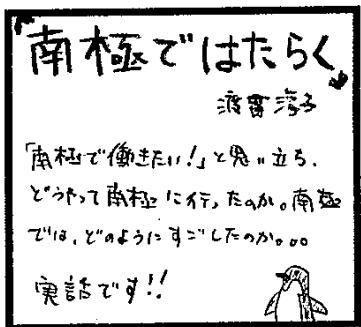 南極ではたらく
渡貫淳子
「南極で働きたい！」と思い立ち、
どうやって南極に行ったのか。南極
では、どのようにすごしたのか。。。
実話です！！